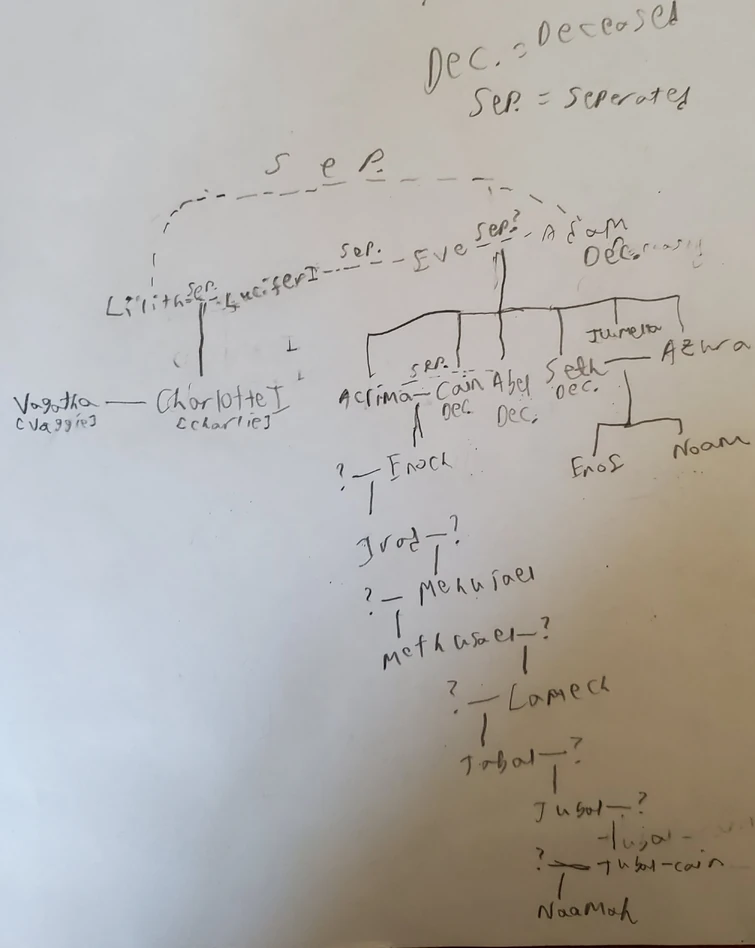 Dec. = Deceased
Sep. = Seperated
Sep.
Lilith Sep. Lucifer I Sep. Eve Sep.? Adam
Dec.
Jumella
Vagatha — Charlotte I
[Vaggie] [Charlie]
Aclima — Sep. Cain Abel Seth — Azura
Dec. Dec. Dec.
? — Enoch
Enos Noam
Irad — ?
? — Mehujael
Methusael — ?
? — Lamech
Jabal — ?
Jubal — ?
Tubal-
? — Tubal-cain
Naamah